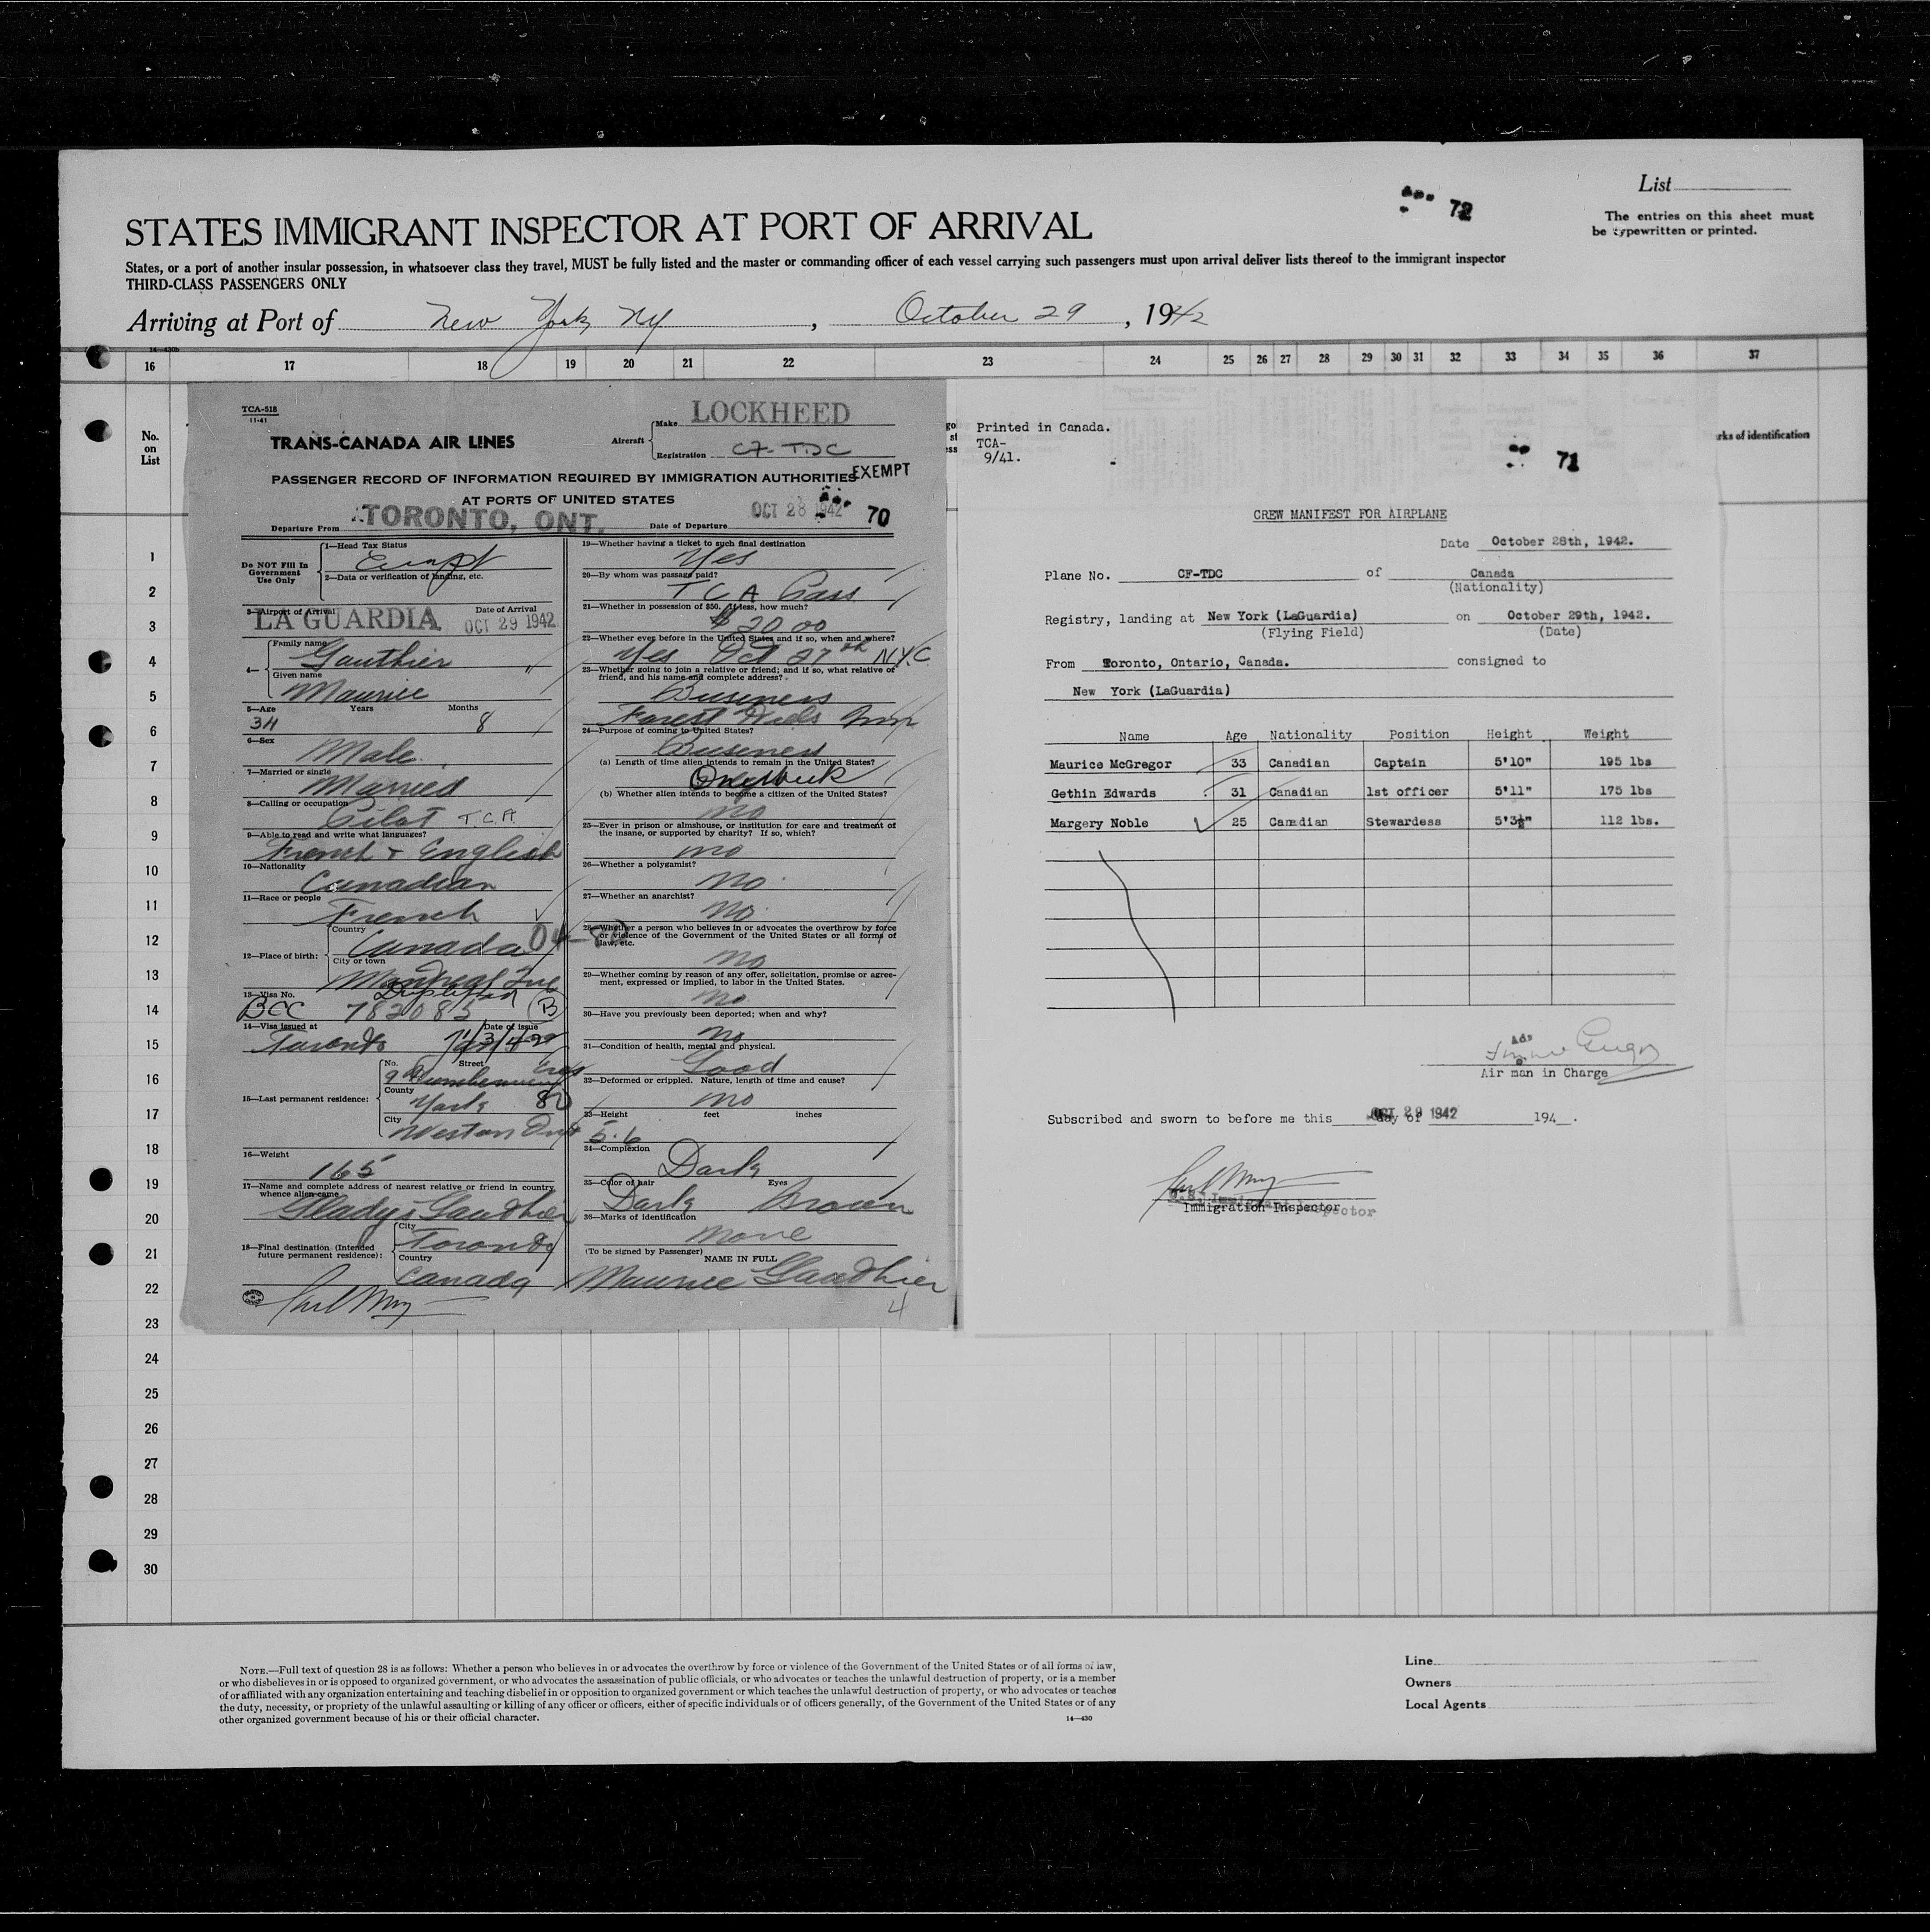 List
72
STATES IMMIGRANT INSPECTOR AT PORT OF ARRIVAL
The entries on this sheet must
be typewritten or printed.
States, or a port of another insular possession, in whatsoever class they travel, MUST be fully listed and the master or commanding officer of each vessel carrying such passengers must upon arrival deliver lists thereof to the immigrant inspector
THIRD-CLASS PASSENGERS ONLY
Arriving at Port of New York NY, October 29, 1942
16 17 18 19 20 21 22 23 24 25 26 27 28 29 30 31 32 33 34 35 36 37
No.
on
List
rks of identification
TCA-518
11-41
TRANS-CANADA AIR LINES
Aircraft
Make LOCKHEED
Registration CF-TDC
PASSENGER RECORD OF INFORMATION REQUIRED BY IMMIGRATION AUTHORITIES
EXEMPT
AT PORTS OF UNITED STATES
Departure From TORONTO, ONT. Date of Departure OCT 28 1942 70
Do NOT Fill In
Government
Use Only
1—Head Tax Status
Exempt
2—Data or verification of landing, etc.
3—Airport of Arrival Date of Arrival
LA GUARDIA OCT 29 1942
4—
Family name
Gauthier
Given name
Maurice
5—Age Years Months
34 8
6—Sex
Male
7—Married or single
Married
8—Calling or occupation
Pilot T.C.A.
9—Able to read and write what languages?
French & English
10—Nationality
Canadian
11—Race or people
French
12—Place of birth:
Country
Canada
City or town
Montreal Que
13—Visa No.
BCC 782085 (B)
14—Visa issued at Date of issue
Toronto
15—Last permanent residence:
No. Street
9
County
York 80
City
Weston Ont
16—Weight
165
17—Name and complete address of nearest relative or friend in country
whence alien came
Gladys Gauthier
18—Final destination (Intended
future permanent residence):
City
Toronto
Country
Canada
19—Whether having a ticket to such final destination
Yes
20—By whom was passage paid?
TCA Pass
21—Whether in possession of $50. If less, how much?
$20.00
22—Whether ever before in the United States and if so, when and where?
Yes Oct 27th N.Y.C.
23—Whether going to join a relative or friend; and if so, what relative or
friend, and his name and complete address?
Business
Forest Hills
24—Purpose of coming to United States?
Business
(a) Length of time alien intends to remain in the United States?
One week
(b) Whether alien intends to become a citizen of the United States?
no
25—Ever in prison or almshouse, or institution for care and treatment of
the insane, or supported by charity? If so, which?
no
26—Whether a polygamist?
no
27—Whether an anarchist?
no
28—Whether a person who believes in or advocates the overthrow by force
or violence of the Government of the United States or all forms of
law, etc.
no
29—Whether coming by reason of any offer, solicitation, promise or agree-
ment, expressed or implied, to labor in the United States.
no
30—Have you previously been deported; when and why?
no
31—Condition of health, mental and physical.
Good
32—Deformed or crippled. Nature, length of time and cause?
no
33—Height feet inches
5.6
34—Complexion
Dark
35—Color of hair Eyes
Dark Brown
36—Marks of identification
none
(To be signed by Passenger) NAME IN FULL
Maurice Gauthier
4
Printed in Canada.
TCA-
9/41.
71
CREW MANIFEST FOR AIRPLANE
Date October 28th, 1942.
Plane No. CF-TDC of Canada
(Nationality)
Registry, landing at New York (LaGuardia) on October 29th, 1942.
(Flying Field) (Date)
From Toronto, Ontario, Canada. consigned to
New York (LaGuardia)
Name Age Nationality Position Height Weight
Maurice McGregor 33 Canadian Captain 5'10" 195 lbs
Gethin Edwards 31 Canadian 1st officer 5'11" 175 lbs
Margery Noble 25 Canadian Stewardess 5'3½" 112 lbs.
Air man in Charge
Subscribed and sworn to before me this day of OCT 29 1942 194 .
Immigration Inspector
1
2
3
4
5
6
7
8
9
10
11
12
13
14
15
16
17
18
19
20
21
22
23
24
25
26
27
28
29
30
NOTE.—Full text of question 28 is as follows: Whether a person who believes in or advocates the overthrow by force or violence of the Government of the United States or of all forms of law,
or who disbelieves in or is opposed to organized government, or who advocates the assassination of public officials, or who advocates or teaches the unlawful destruction of property, or is a member
of or affiliated with any organization entertaining and teaching disbelief in or opposition to organized government or which teaches the unlawful destruction of property, or who advocates or teaches
the duty, necessity, or propriety of the unlawful assaulting or killing of any officer or officers, either of specific individuals or of officers generally, of the Government of the United States or of any
other organized government because of his or their official character.
14—430
Line
Owners
Local Agents